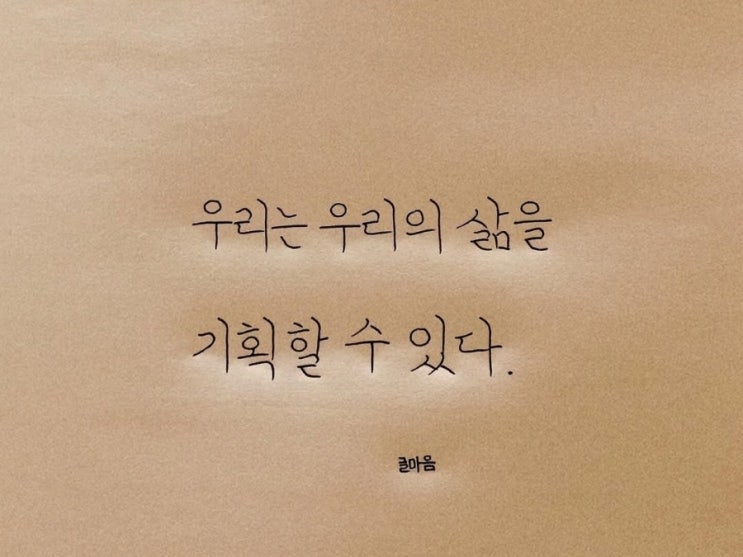 우리는 우리의 삶을
기획할 수 있다.
글마음